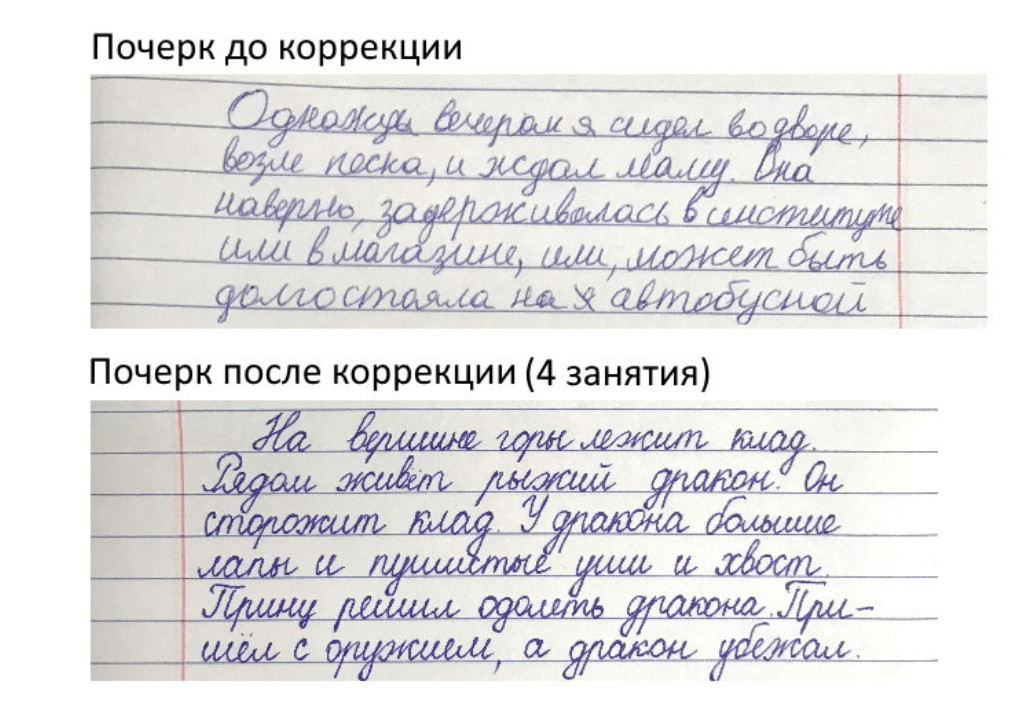 Почерк до коррекции
Однажды вечером я сидел во дворе,
возле песка, и ждал маму. Она
наверно, задерживалась в институте
или в магазине, или, может быть
долго стояла на я автобусной
Почерк после коррекции (4 занятия)
На вершине горы лежит клад.
Рядом живёт рыжий дракон. Он
сторожит клад. У дракона большие
лапы и пушистые уши и хвост.
Принц решил одолеть дракона. При-
шёл с оружием, а дракон убежал.